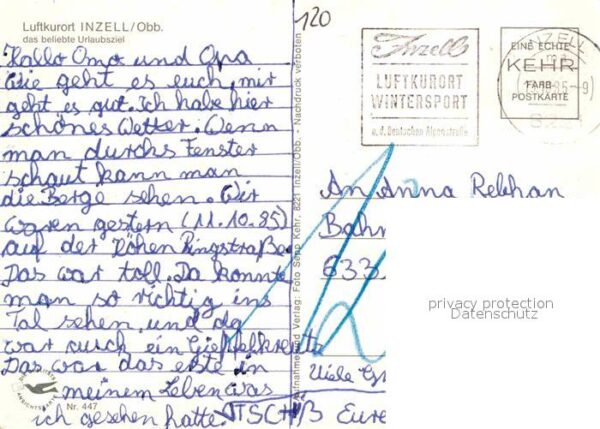 Luftkurort INZELL/Obb.
das beliebte Urlaubsziel
120
Hallo Oma und Opa
Wie geht es euch, mir
geht es gut. Ich habe hier
schönes Wetter. Wenn
man durchs Fenster
schaut kann man
die Berge sehen. Wir
waren gestern (11.10.85)
auf der Rohen Ringstraße
Das war toll. Da konnte
man so richtig ins
Tal sehen, und da
war auch ein Giepfelkreutz
Das war das erste in
meinem Leben was
ich gesehen hatte.
TSCHÜß Eure
Nr. 447
Aufnahme und Verlag: Foto Sepp Kehr, 8221 Inzell/Obb. - Nachdruck verboten
Inzell
LUFTKURORT
WINTERSPORT
a. d. Deutschen Alpenstraße
INZELL
EINE ECHTE
KEHR
FARB
POSTKARTE
An Anna Rebhan
Bahn
633
Viele Gr
privacy protection
Datenschutz